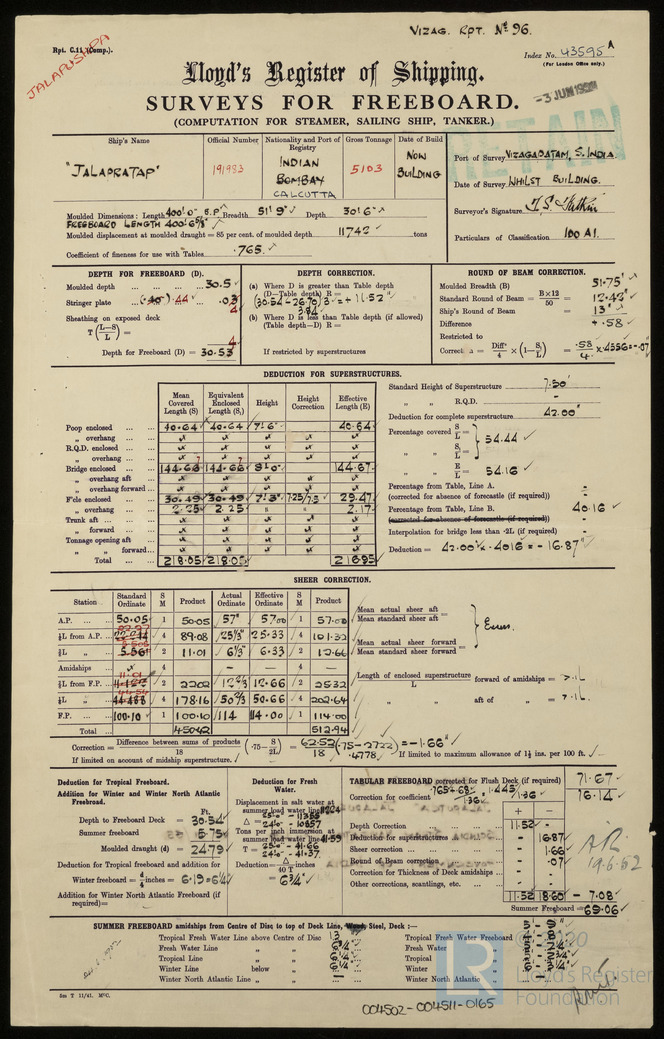 VIZAG. RPT. No 96.
Rpt. C.11 (Comp.).
JALAPUSHPA
Index No. 43595A
(For London Office only.)
Lloyd's Register of Shipping.
-3 JUN 1952
SURVEYS FOR FREEBOARD.
RETAIN
(COMPUTATION FOR STEAMER, SAILING SHIP, TANKER.)
Ship's Name
Official Number
Nationality and Port of Registry
Gross Tonnage
Date of Build
"JALAPRATAP"
191983
INDIAN
BOMBAY
CALCUTTA
5103
NOW BUILDING
Port of Survey VIZAGAPATAM, S. INDIA.
Date of Survey WHILST BUILDING.
Surveyor's Signature
Particulars of Classification 100 A1.
Moulded Dimensions: Length 400'0" B.P. Breadth 51'9" Depth 30'6"
FREEBOARD LENGTH 400'6⅝"
Moulded displacement at moulded draught = 85 per cent. of moulded depth 11742 tons
Coefficient of fineness for use with Tables .765
DEPTH FOR FREEBOARD (D).
Moulded depth 30.5
Stringer plate .44 .03
Sheathing on exposed deck
T (L-S/L) =
Depth for Freeboard (D) = 30.53
DEPTH CORRECTION.
(a) Where D is greater than Table depth
(D-Table depth) R =
(30.54-26.70) 3 = + 11.52"
3.84
(b) Where D is less than Table depth (if allowed)
(Table depth-D) R =
If restricted by superstructures
ROUND OF BEAM CORRECTION.
Moulded Breadth (B) 51.75'
Standard Round of Beam = B×12/50 = 12.42"
Ship's Round of Beam = 13"
Difference + .58
Restricted to
Correctn = Diff/4 × (1-S₁/L) = .58/4 × .4556 = -.07"
DEDUCTION FOR SUPERSTRUCTURES.
Mean Covered Length (S)
Equivalent Enclosed Length (S₁)
Height
Height Correction
Effective Length (E)
Poop enclosed 40.64 40.64 7'6" 40.64
" overhang
R.Q.D. enclosed
" overhang
Bridge enclosed 144.67 144.67 8'0" 144.67
" overhang aft
" overhang forward
F'cle enclosed 30.49 30.49 7'3" 7.25/7.5 29.47
" overhang 2.25 2.25 " " 2.17
Trunk aft
" forward
Tonnage opening aft
" " forward
Total 218.05 218.05 216.95
Standard Height of Superstructure 7.50'
" " R.Q.D. -
Deduction for complete superstructure 42.00"
Percentage covered S/L =
" " S₁/L = } 54.44
" " E/L = 54.16
Percentage from Table, Line A.
(corrected for absence of forecastle (if required)) -
Percentage from Table, Line B. 40.16
(corrected for absence of forecastle (if required)) -
Interpolation for bridge less than .2L (if required) -
Deduction = 42.00" × .4016 = -16.87"
SHEER CORRECTION.
Station
Standard Ordinate
S M
Product
Actual Ordinate
Effective Ordinate
S M
Product
A.P. 50.05 1 50.05 57" 57.00 1 57.00
⅙L from A.P. 22.27 4 89.08 25⅓" 25.33 4 101.32
⅓L " 5.505 2 11.01 6⅓" 6.33 2 12.66
Amidships 4 - - 4 -
⅓L from F.P. 11.01 2 22.02 12⅔" 12.66 2 25.32
⅙L " 44.54 4 178.16 50⅔" 50.66 4 202.64
F.P. 100.10 1 100.10 114 114.00 1 114.00
Total 450.42 512.94
Mean actual sheer aft
Mean standard sheer aft =
Mean actual sheer forward
Mean standard sheer forward =
Excess.
Length of enclosed superstructure
L
forward of amidships = >.1L
" aft of " = >.1L
Correction = Difference between sums of products/18 (.75-S/2L) = 62.52/18 (.75-.2722) = -1.66"
.4778
If limited on account of midship superstructure.
If limited to maximum allowance of 1½ ins. per 100 ft.
Deduction for Tropical Freeboard.
Addition for Winter and Winter North Atlantic Freeboard.
Ft.
Depth to Freeboard Deck = 30.54
Summer freeboard = 5.75
Moulded draught (d) = 24.79
Deduction for Tropical freeboard and addition for
Winter freeboard = d/4 inches = 6.19 = 6¼"
Addition for Winter North Atlantic Freeboard (if required) =
Deduction for Fresh Water.
Displacement in salt water at summer load water line
Δ = 25'-0" - 11355
24'-0" - 10857
Tons per inch immersion at summer load water line 41.59
T = 25'-0" - 41.66
24'-0" - 41.37
Deduction = Δ/40 T inches
= 6¾"
TABULAR FREEBOARD corrected for Flush Deck (if required) 71.67
Correction for coefficient .765+.68/1.36 = 1.445/1.36 76.14
+ -
Depth Correction 11.52
Deduction for superstructures 16.87
Sheer correction 1.66
Round of Beam correction .07
Correction for Thickness of Deck amidships
Other corrections, scantlings, etc.
11.52 18.60 -7.08
Summer Freeboard = 69.06
19.6.52
SUMMER FREEBOARD amidships from Centre of Disc to top of Deck Line, Wood, Steel, Deck :-
Tropical Fresh Water Line above Centre of Disc 13"
Fresh Water Line " " 6¾"
Tropical Line " " 6¼"
Winter Line below " 6¼"
Winter North Atlantic Line " "
Tropical Fresh Water Freeboard
Fresh Water "
Tropical "
Winter "
Winter North Atlantic "
LR
Lloyd's Register
Foundation
5m T 11/41. MʳC.
004502-004511-0165